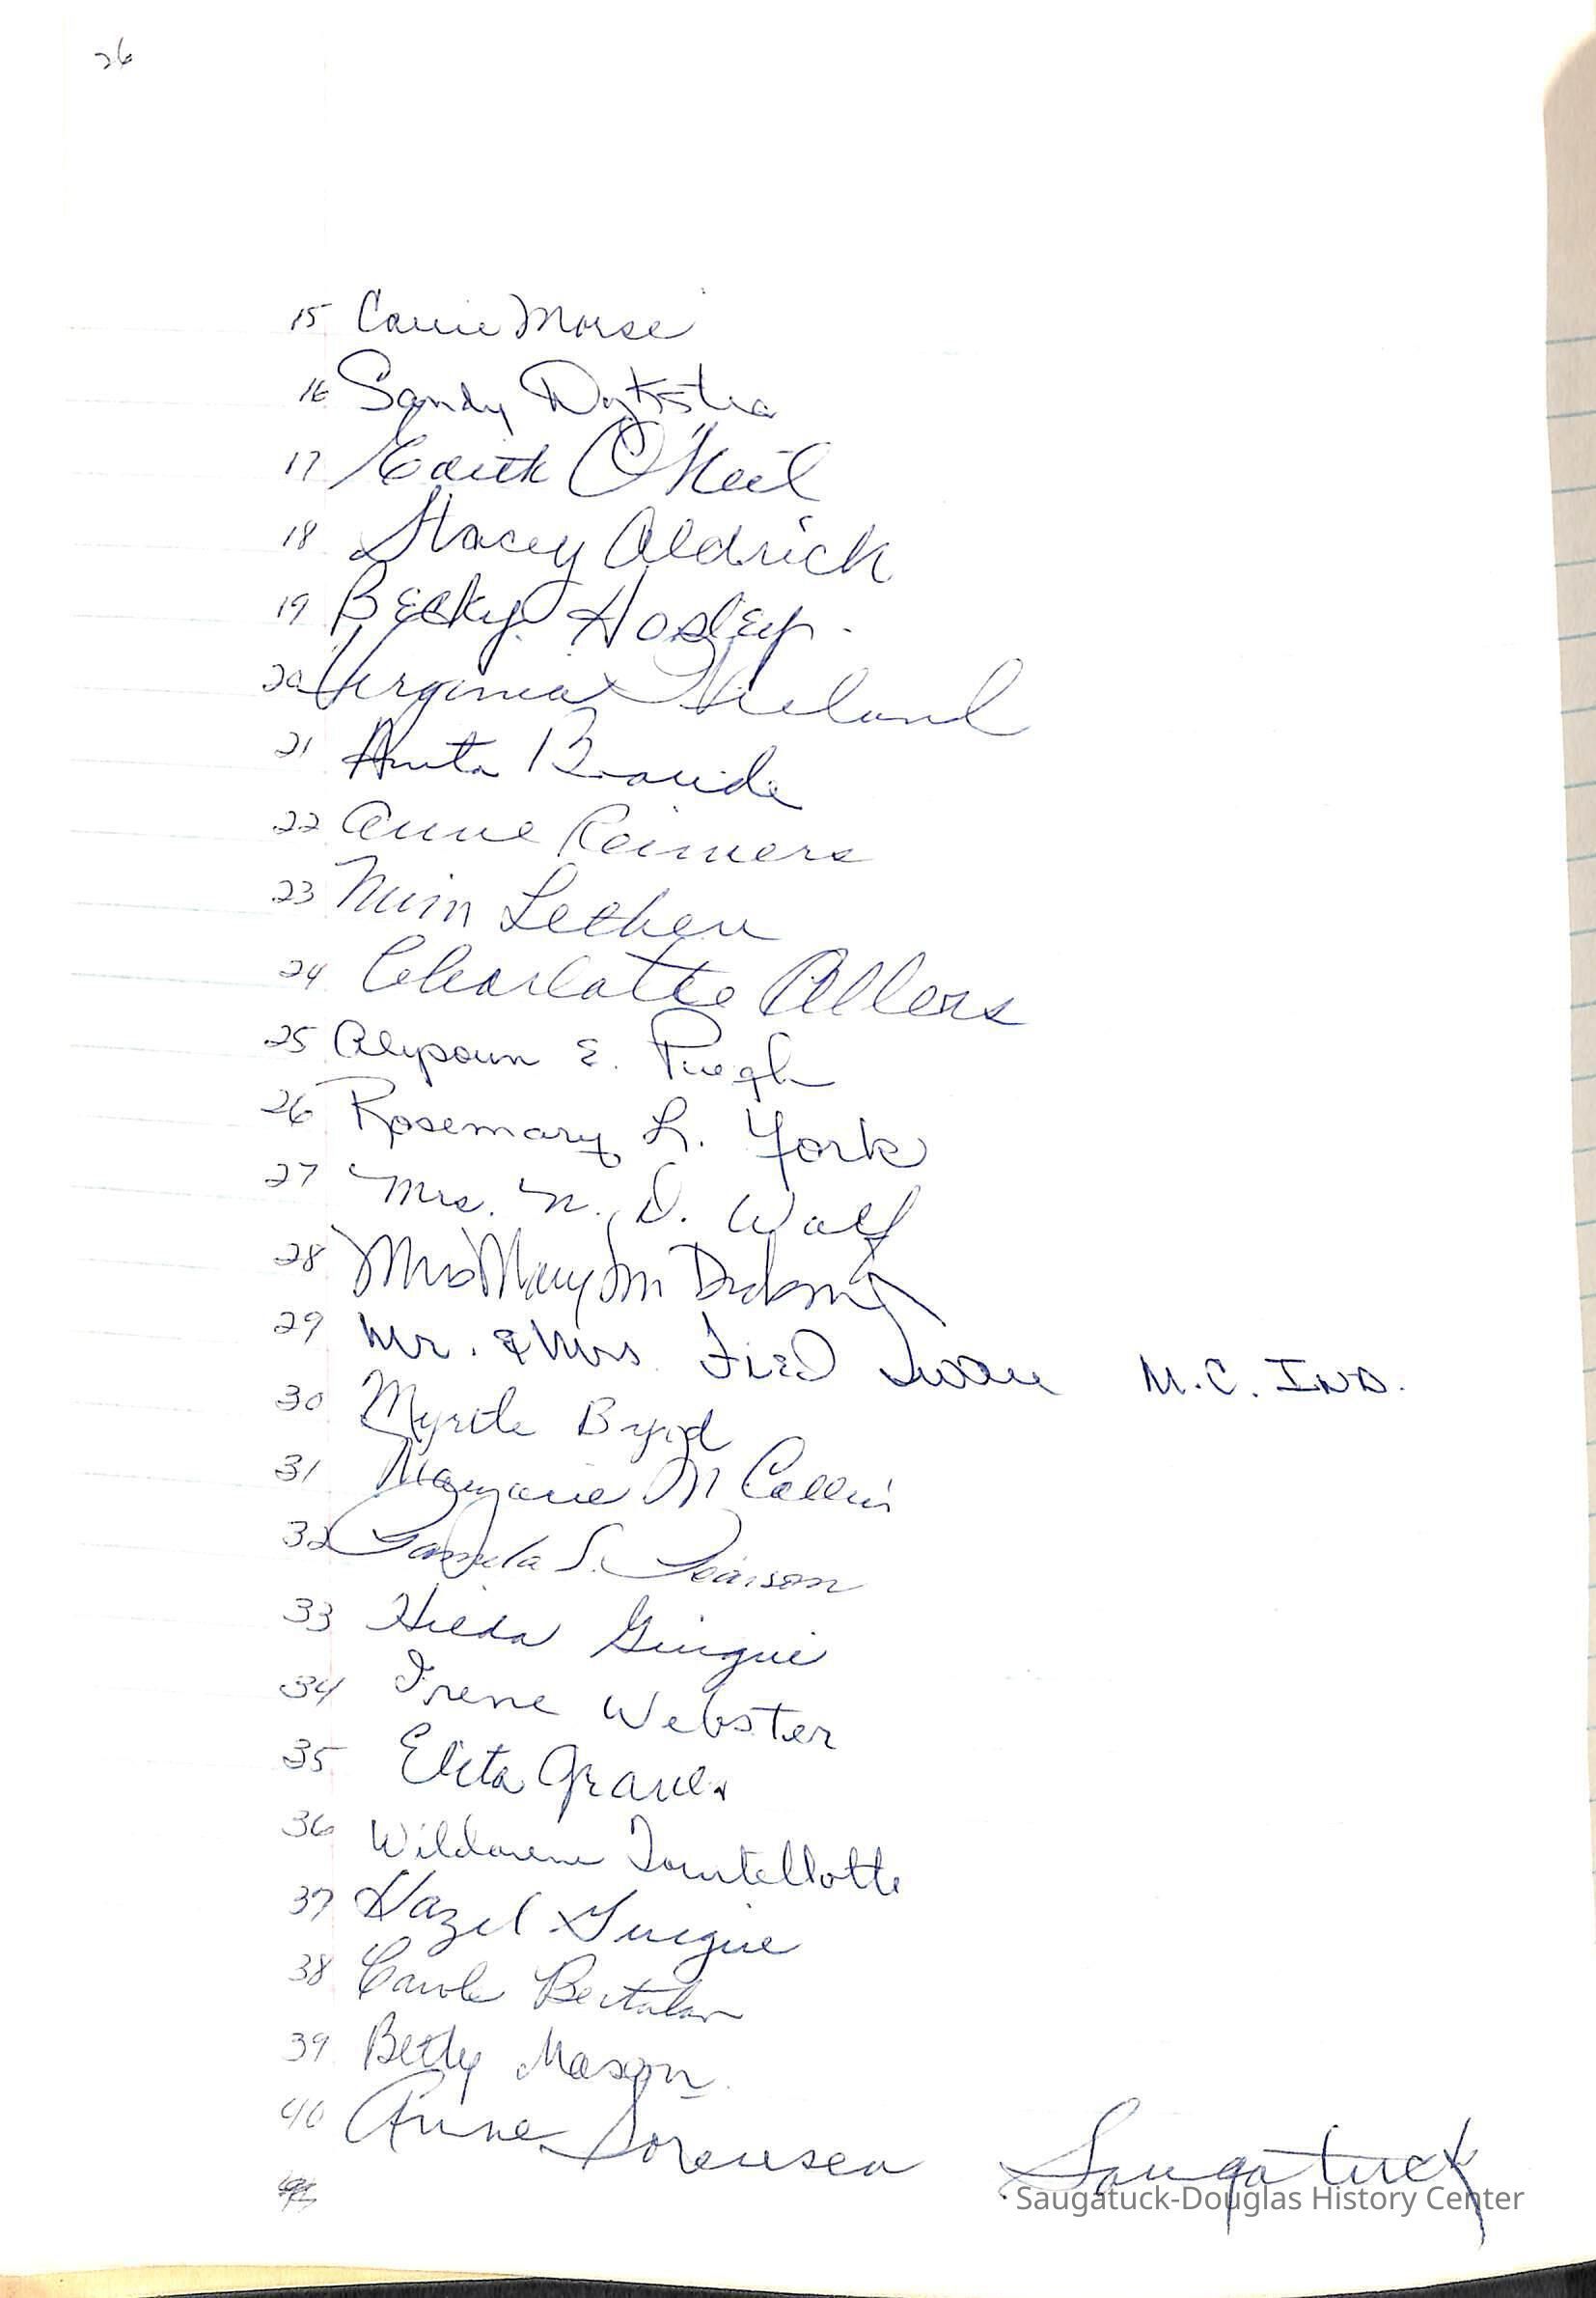 26
15 Carrie Morse
16 Sandy Dykstra
17 Edith O'Neil
18 Stacey Aldrich
19 Becky Hosley.
20 Virginia
21 Anita Braude
22 Anne Reimers
23 Mim Lethen
24 Charlotte Allers
25 E. Pugh
26 Rosemary L. York
27 Mrs. N. D. Wolf
28 Mrs Mary
29 Mr. & Mrs. Fred Swan M.C. IND.
30 Myrtle Byrd
31 Marjorie M Collins
32 Pamela S. Pearson
33 Hilda Guigue
34 Irene Webster
35 Elita Graves
36 Wildarene Tourtellotte
37 Hazel Guigue
38 Carole Bertalan
39 Betty Mason
40 Anne Sorensen Saugatuck
Saugatuck-Douglas History Center